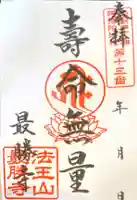 奉拝
第十三番
年 月 日
壽命無量
最勝寺
法王山
最勝寺